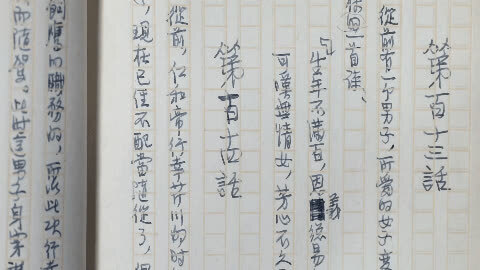 第百十三話
從前有一個男子，所愛的女子變
一首
「生年不滿百，恩義總易
可嘆無情女，芳心不久
第百十四話
從前，仁和帝行幸芹川的時
，現在已經不配當隨從了，但
鷹的職務的，所以此次行幸
而隨駕。此時這男子身穿